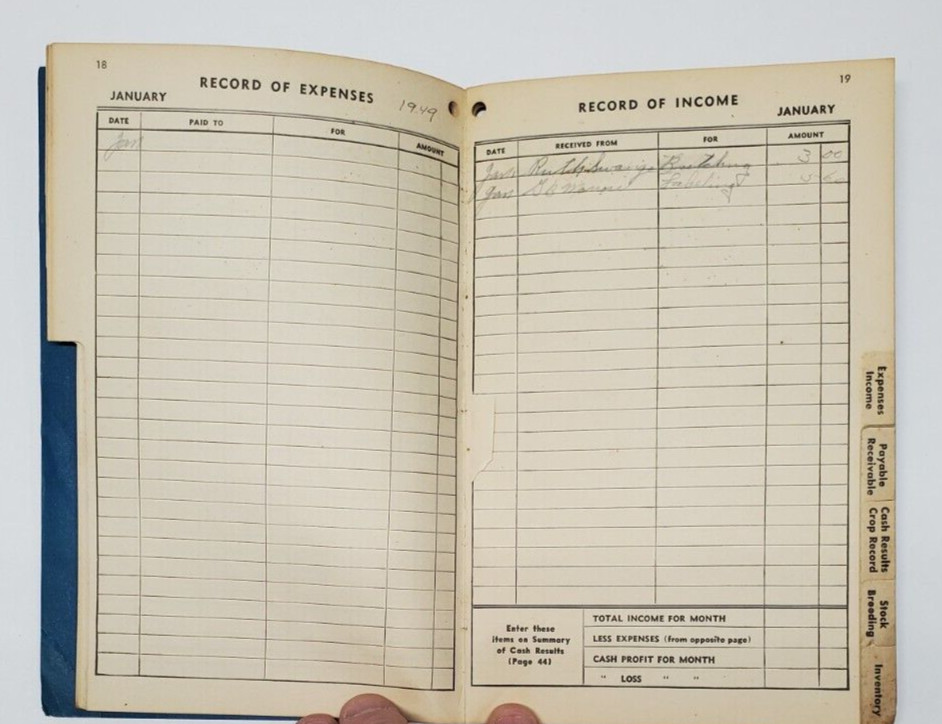 18
RECORD OF EXPENSES
JANUARY
1949
DATE PAID TO FOR AMOUNT
Jan
19
RECORD OF INCOME
JANUARY
DATE RECEIVED FROM FOR AMOUNT
Jan Ruth 3 00
Jan
Enter these
items on Summary
of Cash Results
(Page 44)
TOTAL INCOME FOR MONTH
LESS EXPENSES (from opposite page)
CASH PROFIT FOR MONTH
" LOSS " "
Expenses
Income
Payable
Receivable
Cash Results
Crop Record
Stock
Breeding
Inventory